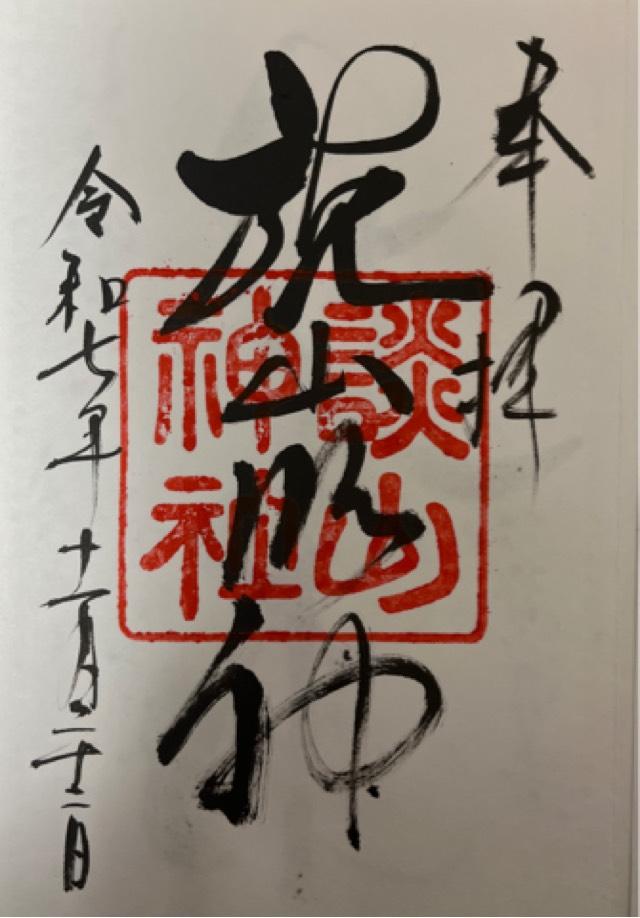 奉拝
談山明神
談山
神社
令和七年十一月二十二日